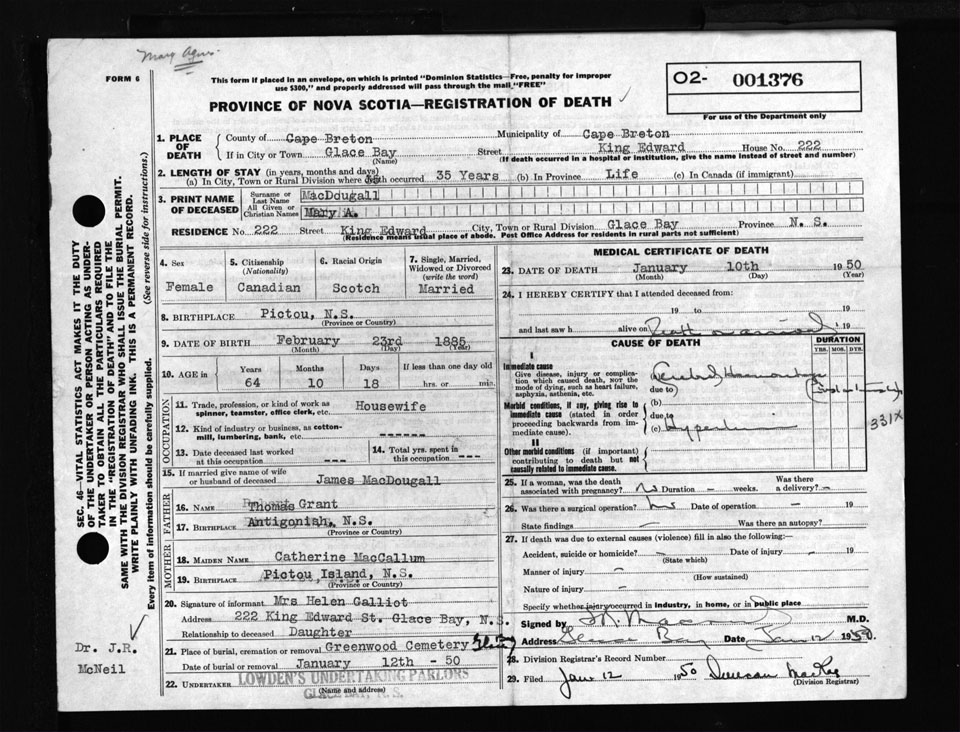 Mary Agnes
FORM 6
This form if placed in an envelope, on which is printed "Dominion Statistics—Free, penalty for improper
use $300," and properly addressed will pass through the mail "FREE"
O2- 001376
PROVINCE OF NOVA SCOTIA—REGISTRATION OF DEATH
For use of the Department only
1. PLACE OF DEATH
County of Cape Breton Municipality of Cape Breton
If in City or Town Glace Bay Street King Edward House No. 222
(Name) (If death occurred in a hospital or institution, give the name instead of street and number)
2. LENGTH OF STAY (in years, months and days)
(a) In City, Town or Rural Division where death occurred 35 Years (b) In Province Life (c) In Canada (if immigrant)
3. PRINT NAME OF DECEASED
Surname or Last Name MacDougall
All Given or Christian Names Mary A.
RESIDENCE No. 222 Street King Edward City, Town or Rural Division Glace Bay Province N. S.
(Residence means usual place of abode. Post Office Address for residents in rural parts not sufficient)
4. Sex Female
5. Citizenship (Nationality) Canadian
6. Racial Origin Scotch
7. Single, Married, Widowed or Divorced (write the word) Married
8. BIRTHPLACE Pictou, N.S.
(Province or Country)
9. DATE OF BIRTH February 23rd 1885
(Month) (Day) (Year)
10. AGE in Years 64 Months 10 Days 18 If less than one day old hrs. or min.
OCCUPATION
11. Trade, profession, or kind of work as spinner, teamster, office clerk, etc. Housewife
12. Kind of industry or business, as cotton-mill, lumbering, bank, etc. -------
13. Date deceased last worked at this occupation ---
14. Total yrs. spent in this occupation ---
15. If married give name of wife or husband of deceased James MacDougall
FATHER
16. NAME Thomas Grant
17. BIRTHPLACE Antigonish, N.S.
(Province or Country)
MOTHER
18. MAIDEN NAME Catherine MacCallum
19. BIRTHPLACE Pictou Island, N.S.
(Province or Country)
20. Signature of informant Mrs Helen Galliot
Address 222 King Edward St. Glace Bay, N. S.
Relationship to deceased Daughter
21. Place of burial, cremation or removal Greenwood Cemetery Glace Bay
Date of burial or removal January 12th - 50
22. UNDERTAKER LOWDEN'S UNDERTAKING PARLORS
(Name and address)
GLACE BAY, N. S.
MEDICAL CERTIFICATE OF DEATH
23. DATE OF DEATH January 10th 1950
(Month) (Day) (Year)
24. I HEREBY CERTIFY that I attended deceased from:
19 to 19
and last saw h alive on Death on arrival 19
CAUSE OF DEATH
DURATION
YRS. MOS. DYS.
I
Immediate cause
Give disease, injury or complication which caused death, NOT the mode of dying, such as heart failure, asphyxia, asthenia, etc.
(a) Cerebral Haemorrhage
due to
(b)
Morbid conditions, if any, giving rise to immediate cause (stated in order proceeding backwards from immediate cause).
due to
(c)
331X
II
Other morbid conditions (if important) contributing to death but not causally related to immediate cause.
25. If a woman, was the death associated with pregnancy? No Duration - weeks. Was there a delivery? -
26. Was there a surgical operation? No Date of operation - 19
State findings Was there an autopsy?
27. If death was due to external causes (violence) fill in also the following:—
Accident, suicide or homicide? - Date of injury - 19
(State which)
Manner of injury -
(How sustained)
Nature of injury -
Specify whether injury occurred in industry, in home, or in public place
Signed by M.D.
Address Glace Bay Date Jan 12 1950.
28. Division Registrar's Record Number
29. Filed Jan 12 1950 Duncan MacRae
(Division Registrar)
SEC. 46—VITAL STATISTICS ACT MAKES IT THE DUTY
OF THE UNDERTAKER OR PERSON ACTING AS UNDER-
TAKER TO OBTAIN ALL THE PARTICULARS REQUIRED
IN THE "REGISTRATION OF DEATH" AND TO FILE THE
SAME WITH THE DIVISION REGISTRAR WHO SHALL ISSUE THE BURIAL PERMIT.
WRITE PLAINLY WITH UNFADING INK. THIS IS A PERMANENT RECORD.
Every item of information should be carefully supplied. (See reverse side for instructions.)
Dr. J.R.
McNeil